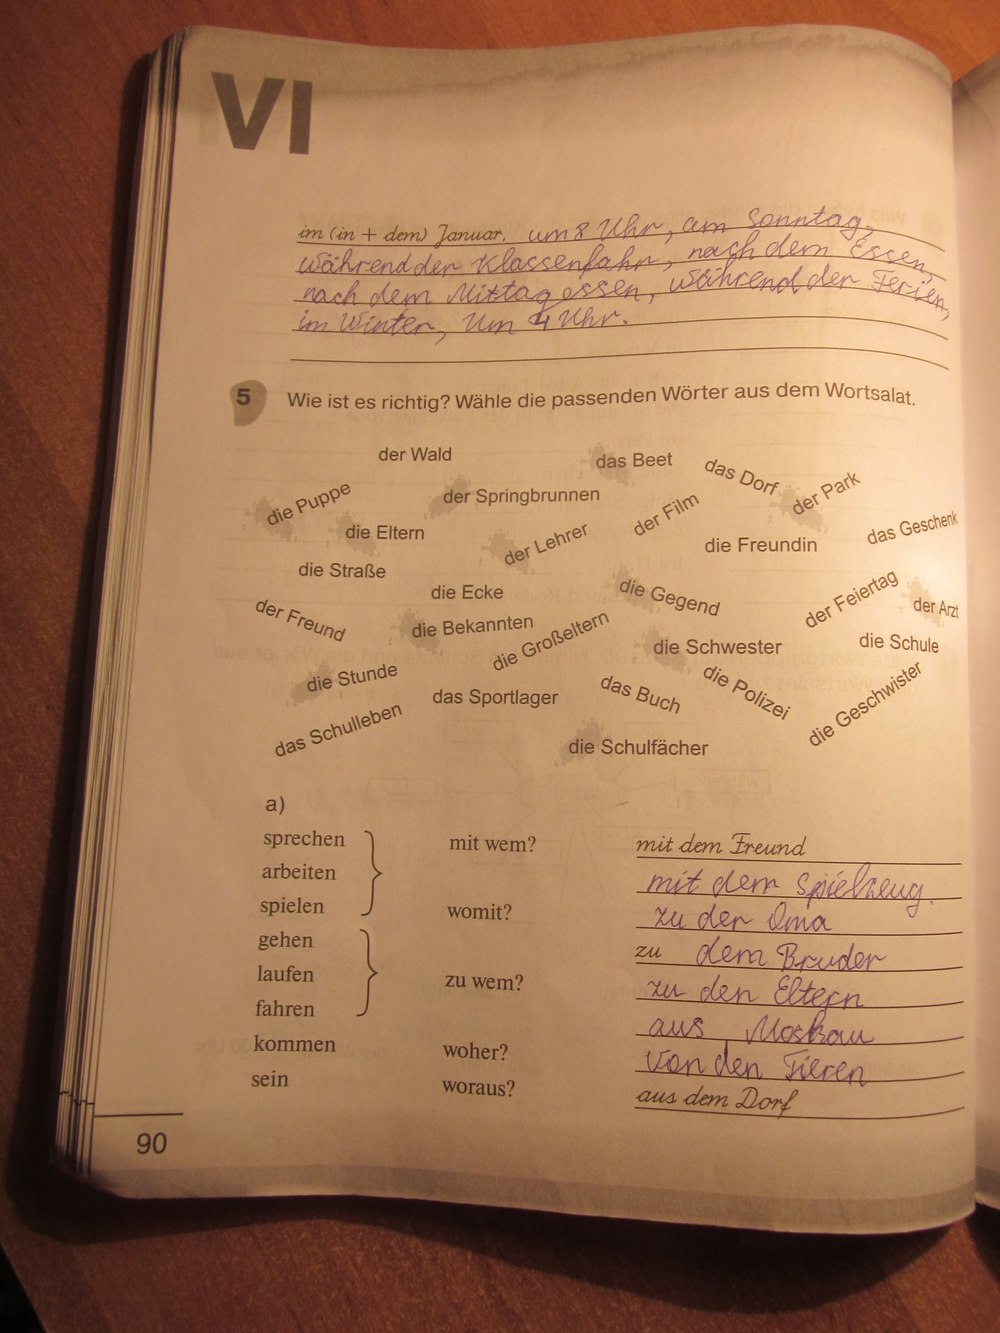 VI
im (in + dem) Januar, um 8 Uhr, am Sonntag,
während der Klassenfahr, nach dem Essen,
nach dem Mittagessen, während der Ferien,
im Winter, Um 4 Uhr.
5 Wie ist es richtig? Wähle die passenden Wörter aus dem Wortsalat.
der Wald
das Beet
das Dorf
der Park
die Puppe
der Springbrunnen
der Film
das Geschenk
die Eltern
der Lehrer
die Freundin
die Straße
die Ecke
die Gegend
der Feiertag
der Arzt
der Freund
die Bekannten
die Großeltern
die Schwester
die Schule
die Stunde
das Sportlager
das Buch
die Polizei
die Geschwister
das Schulleben
die Schulfächer
a)
sprechen mit wem? mit dem Freund
arbeiten mit dem Spielzeug.
spielen womit? zu der Oma
gehen zu dem Bruder
laufen zu wem? zu den Eltern
fahren aus Moskau
kommen woher? von den Tieren
sein woraus? aus dem Dorf
90